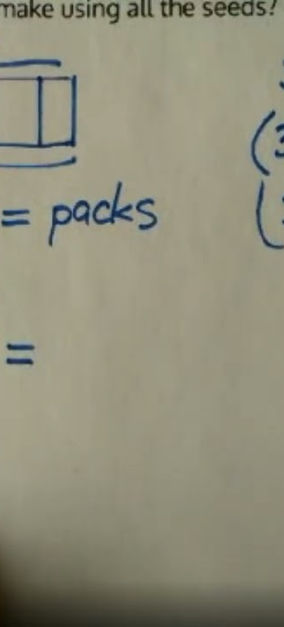 make using all the seeds?
= packs
=